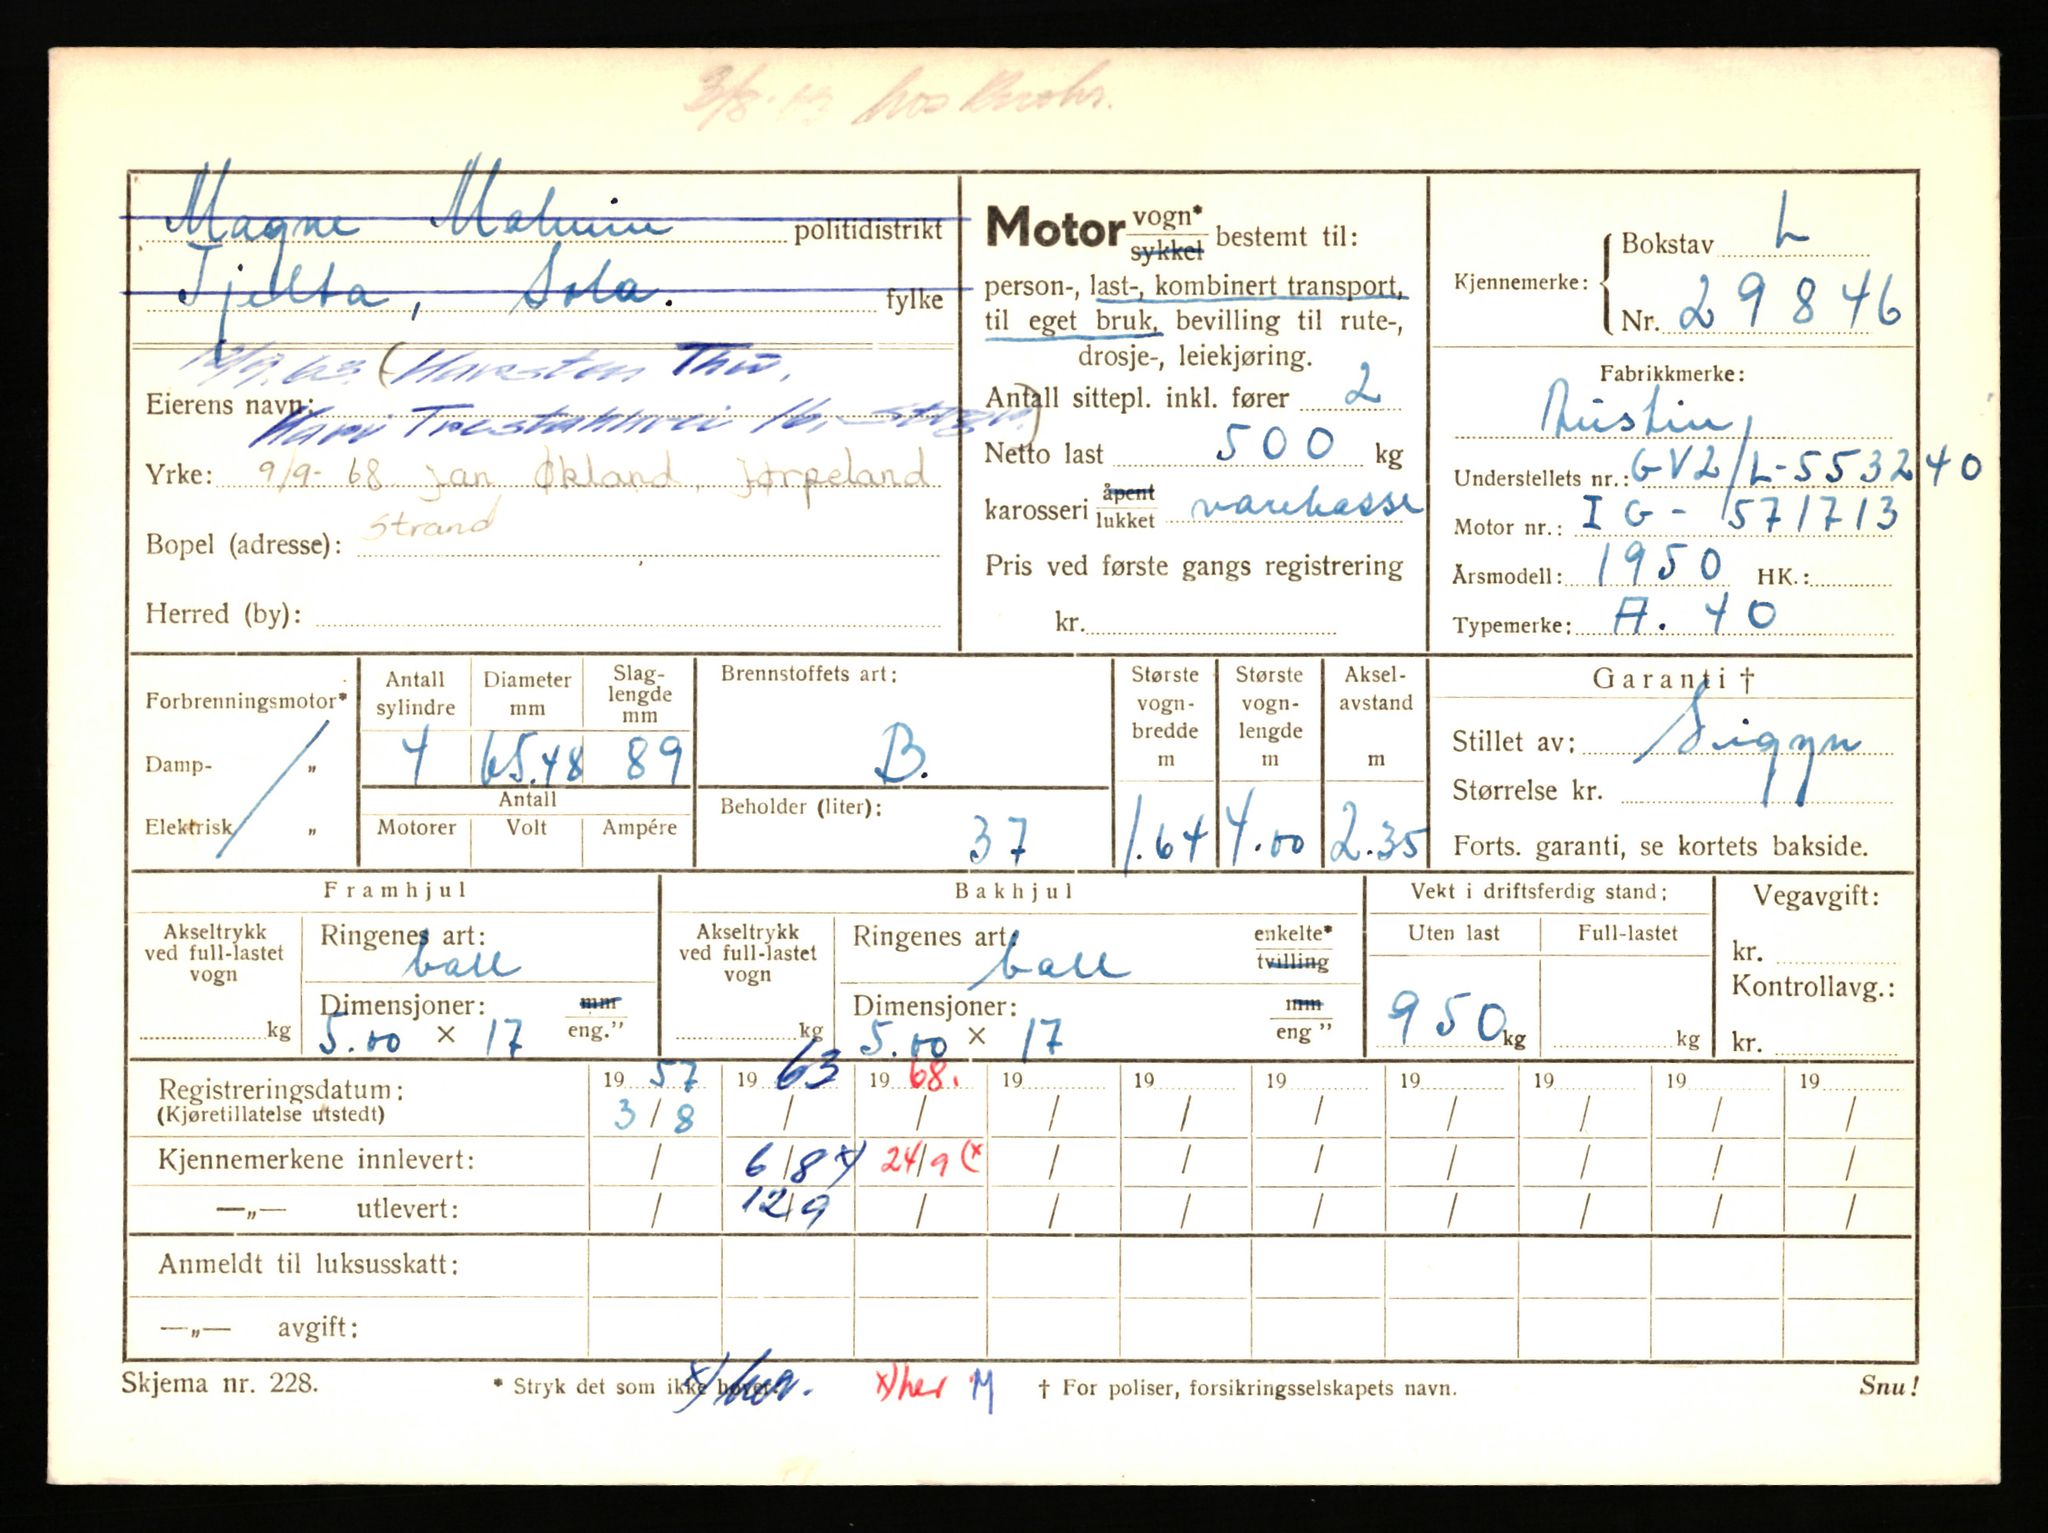 3/8-63 hos
Magne politidistrikt
Tjelta, Sola. fylke
12/9.63. (Karsten
Eierens navn:
Yrke: 9/9-68 Jan Økland, Jørpeland
Strand
Bopel (adresse):
Herred (by):
Motor vogn* sykkel bestemt til:
person-, last-, kombinert transport,
til eget bruk, bevilling til rute-,
drosje-, leiekjøring.
Antall sittepl. inkl. fører 2
Netto last 500 kg
karosseri åpent lukket varekasse
Pris ved første gangs registrering
kr.
Kjennemerke: Bokstav L
Nr. 29846
Fabrikkmerke:
Austin
Understellets nr.: GV2/L-553240
Motor nr.: IG-571713
Årsmodell: 1950 HK.:
Typemerke: A.40
Forbrenningsmotor*
Damp- „
Elektrisk „
Antall sylindre 4
Diameter mm 65.48
Slaglengde mm 89
Antall
Motorer Volt Ampére
Brennstoffets art:
B.
Beholder (liter):
37
Største vogn-bredde m 1.64
Største vogn-lengde m 4.00
Aksel-avstand m 2.35
Garanti †
Stillet av: Sigyn
Størrelse kr.
Forts. garanti, se kortets bakside.
Framhjul
Akseltrykk ved full-lastet vogn kg
Ringenes art:
ball
Dimensjoner: mm eng."
5.00 × 17
Bakhjul
Akseltrykk ved full-lastet vogn kg
Ringenes art: enkelte* tvilling
ball
Dimensjoner: mm eng "
5.00 × 17
Vekt i driftsferdig stand:
Uten last Full-lastet
950 kg kg
Vegavgift:
kr.
Kontrollavg.:
kr.
Registreringsdatum: 19 57 19 63 19 68. 19 19 19 19 19 19 19
(Kjøretillatelse utstedt) 3/8 / / / / / / / / /
Kjennemerkene innlevert: / 6/8 x) 24/9 (x / / / / / / /
—„— utlevert: / 12/9 / / / / / / / /
Anmeldt til luksusskatt:
—„— avgift:
x) her. x) her M
Skjema nr. 228. * Stryk det som ikke høver. † For poliser, forsikringsselskapets navn. Snu!